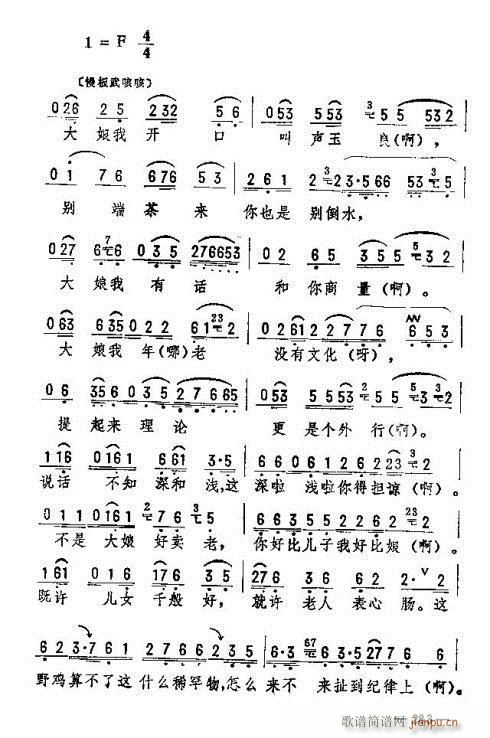 1=F 4/4
〔慢板武咳咳〕
0 26 2 5 2 32 5 6 | 0 53 5 53 3 5 5 532 |
大娘我开口 叫声玉良(啊),
0 1 7 6 6 76 5 3 | 2 6 1 2 2 3·5 66 53 5 |
别端茶来 你也是别倒水,
0 27 7 6 6 0 3 5 276653 | 0 2 6 5 3 5 5 3 2 |
大娘我有话 和你商量(啊)。
0 63 6 35 0 2 2 6 1 23 2 | 0 2 61 2 2 7 7 6 6 5 3 |
大娘我年(哪)老 没有文化(呀),
0 6 35 6 0 35 1 2 7 6 65 | 0 53 5 53 2 5 3 2 |
提起来理论 更是个外行(啊)。
1 16 0 161 6 61 3·5 | 6 6 0 6 1 2 6 2 23 3 2 |
说话不知深和浅,这 深啦浅啦你得担谅(啊)。
0 1 1 0 161 2 7 6 2 2 | 6 6 3 5 5 6 6 2 6 2 23 2 |
不是大娘好卖老, 你好比儿子我好比娘(啊)。
1 61 0 1 6 1 76 3 5 | 2 76 3 6 3 6 2 2· 2 |
既许儿女千般好, 就许老人表心肠。这
6 2 3·7 6 1 2 7 6 6 2 3 2 | 6·3 67 5 3 6 2 7 6 6 2 |
野鸡算不了这什么稀罕物,怎么来不来扯到纪律上(啊)。
歌谱简谱网 283
jianpu.cn